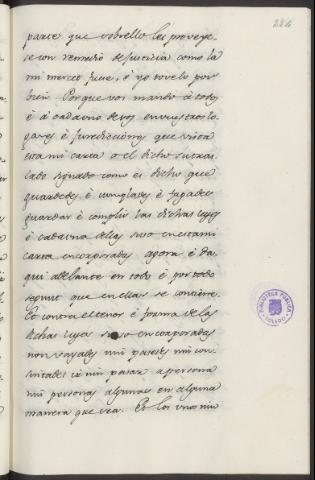 224
parece que sobrello les proveye-
se con remedio de justicia como la
mi merced fuese, è yo tovelo por
bien. Porque vos mando à todos
è à cada uno de vos en vuestros lo-
gares è jurediciones que vista
esta mi carta o el dicho su tras-
lado signado como es dicho que
guardedes è cunplades è fagades
guardar è complir las dichas leyes
è cada una dellas suso en esta mi
carta encorporadas agora è da-
qui adelante en todo è por todo
segunt que en ellas se contiene.
Et contra el tenor è forma de las
dichas leyes suso encorporadas
non vayades nin pasedes nin con-
sintades ir nin pasar a persona
nin personas algunas en alguna
manera que sea. Et los unos nin
BIBLIOTECA PUBLICA
TOLEDO